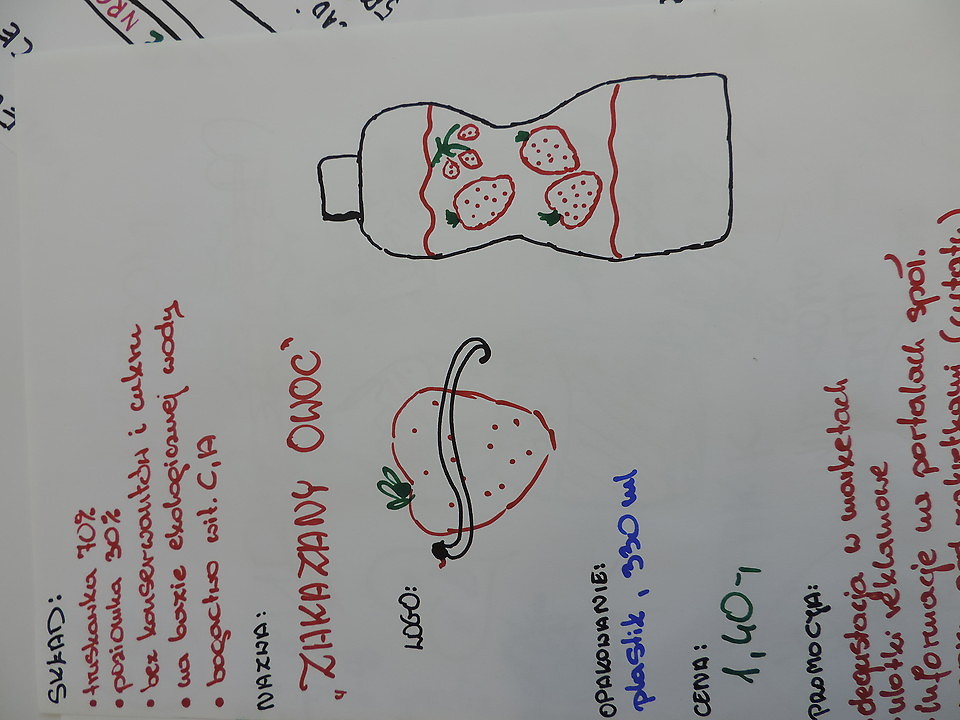 SKŁAD:
• truskawka 70%
• poziomka 30%
• bez konserwantów i cukru
• na bazie ekologicznej wody
• bogactwo wit. C, A
NAZWA:
"ZAKAZANY OWOC"
LOGO:
OPAKOWANIE:
plastik, 330 ml
CENA:
1,40-
PROMOCYJA:
degustacja w marketach
ulotki reklamowe
informacje na portalach społ.